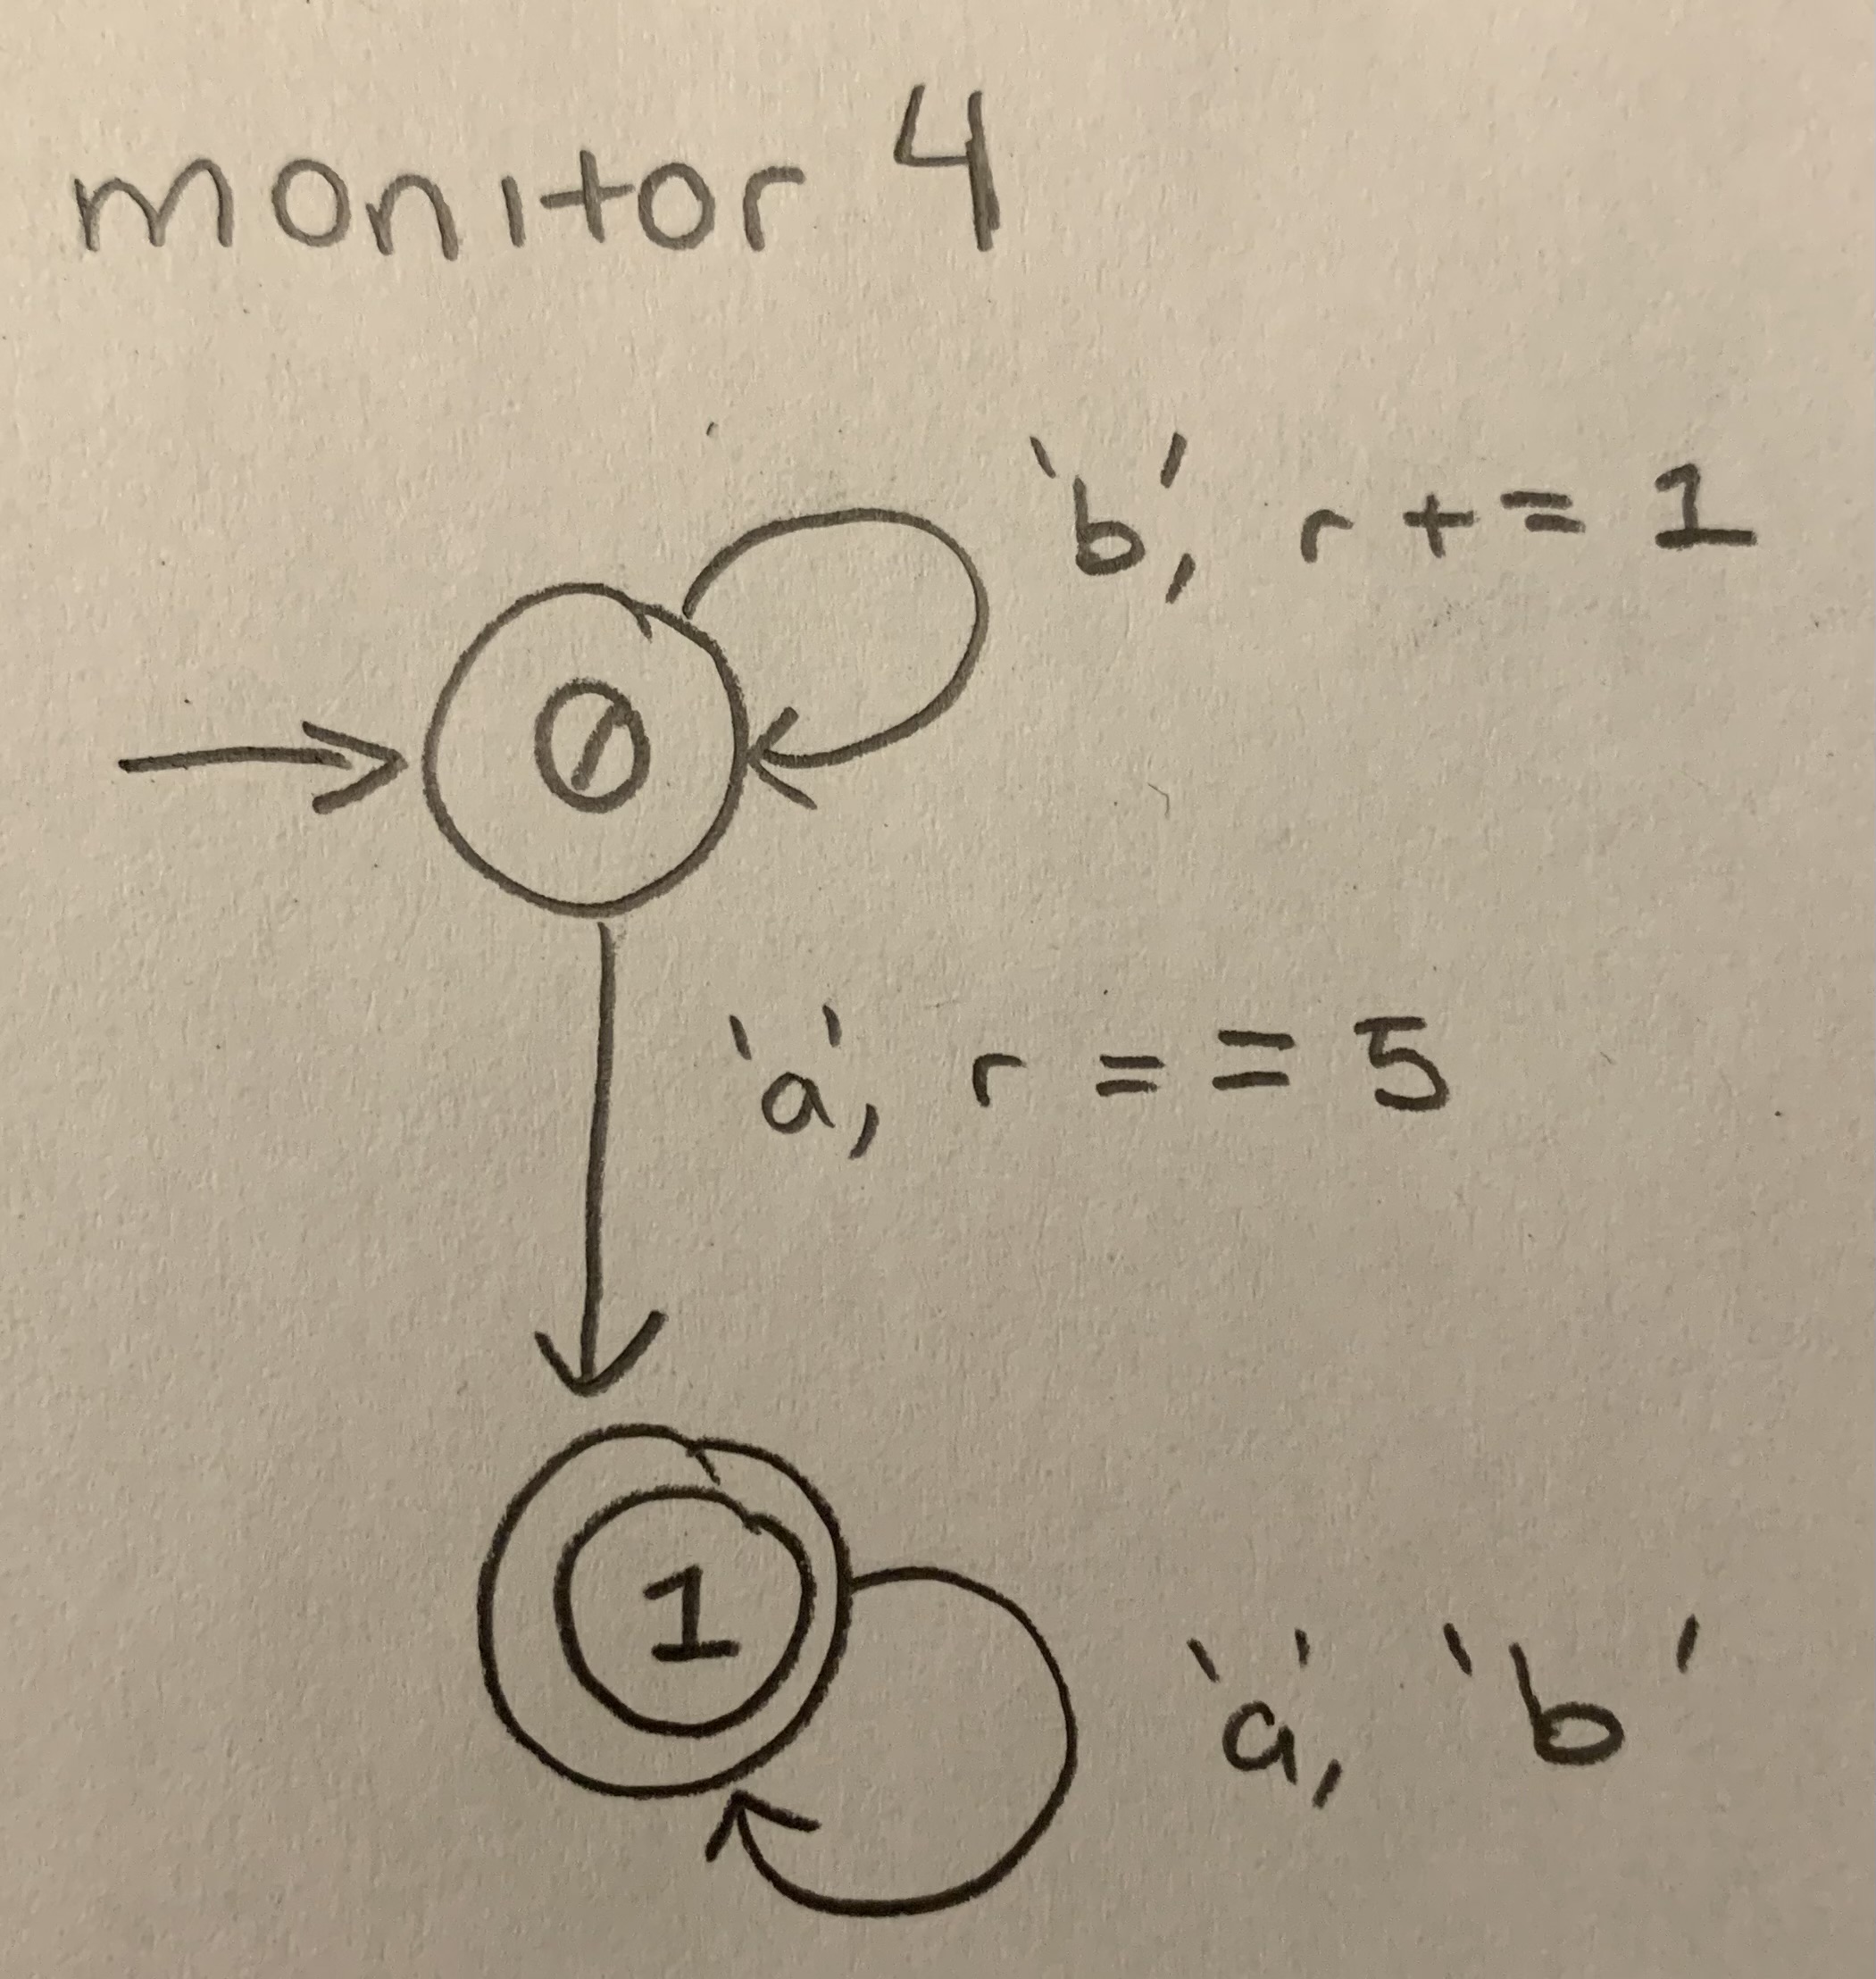 monitor 4
'b', r += 1
0
'a', r == 5
1
'a', 'b'